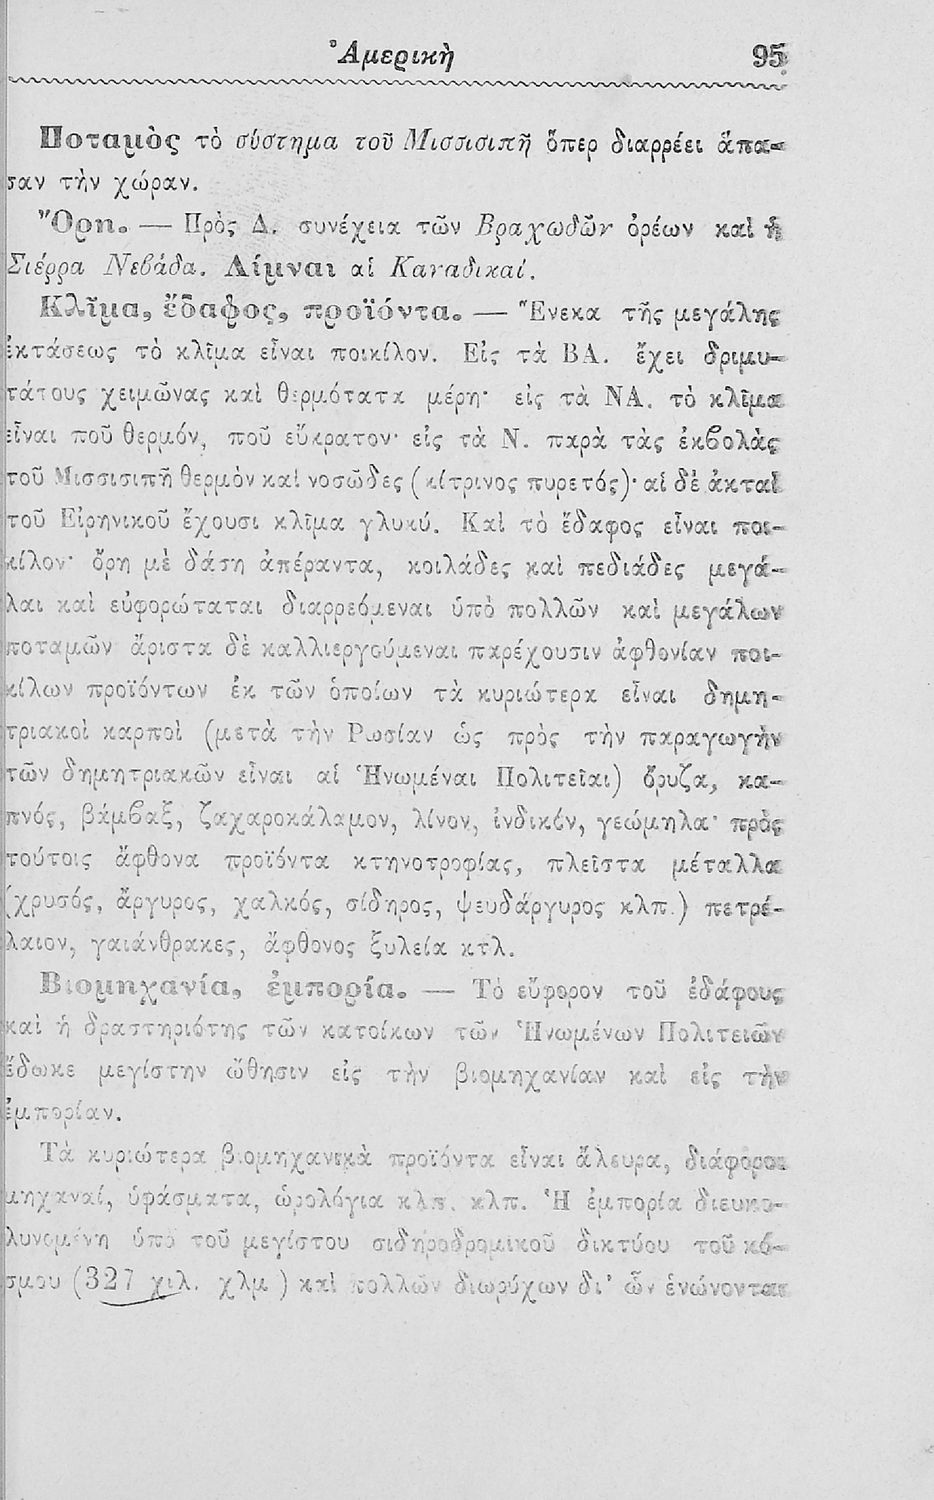 Ἀμερικὴ 95
Ποταμὸς τὸ σύστημα τοῦ Μισσισιπῆ ὅπερ διαρρέει ἅπα-
σαν τὴν χώραν.
Ὄρη. — Πρὸς Δ. συνέχεια τῶν Βραχωδῶν ὀρέων καὶ ἡ
Σιέρρα Νεβάδα. Λίμναι αἱ Καναδικαί.
Κλῖμα, ἔδαφος, προϊόντα. — Ἕνεκα τῆς μεγάλης
ἐκτάσεως τὸ κλῖμα εἶναι ποικίλον. Εἰς τὰ ΒΑ. ἔχει δριμυ-
τάτους χειμῶνας καὶ θερμότατα μέρη· εἰς τὰ ΝΑ. τὸ κλῖμα
εἶναι ποῦ θερμόν, ποῦ εὔκρατον· εἰς τὰ Ν. παρὰ τὰς ἐκβολὰς
τοῦ Μισσισιπῆ θερμὸν καὶ νοσῶδες (κίτρινος πυρετός)· αἱ δὲ ἀκταὶ
τοῦ Εἰρηνικοῦ ἔχουσι κλῖμα γλυκύ. Καὶ τὸ ἔδαφος εἶναι ποι-
κίλον· ὄρη μὲ δάση ἀπέραντα, κοιλάδες καὶ πεδιάδες μεγά-
λαι καὶ εὐφορώταται διαρρεόμεναι ὑπὸ πολλῶν καὶ μεγάλων
ποταμῶν ἄριστα δὲ καλλιεργούμεναι παρέχουσιν ἀφθονίαν ποι-
κίλων προϊόντων ἐκ τῶν ὁποίων τὰ κυριώτερα εἶναι δημη-
τριακοὶ καρποὶ (μετὰ τὴν Ρωσίαν ὡς πρὸς τὴν παραγωγὴν
τῶν δημητριακῶν εἶναι αἱ Ἡνωμέναι Πολιτεῖαι) ὄρυζα, κα-
πνός, βάμβαξ, ζαχαροκάλαμον, λίνον, ἰνδικόν, γεώμηλα· πρὸς
τούτοις ἄφθονα προϊόντα κτηνοτροφίας, πλεῖστα μέταλλα
(χρυσός, ἄργυρος, χαλκός, σίδηρος, ψευδάργυρος κλπ.) πετρέ-
λαιον, γαιάνθρακες, ἄφθονος ξυλεία κτλ.
Βιομηχανία, ἐμπορία. — Τὸ εὔφορον τοῦ ἐδάφους
καὶ ἡ δραστηριότης τῶν κατοίκων τῶν Ἡνωμένων Πολιτειῶν
ἔδωκε μεγίστην ὤθησιν εἰς τὴν βιομηχανίαν καὶ εἰς τὴν
ἐμπορίαν.
Τὰ κυριώτερα βιομηχανικὰ προϊόντα εἶναι ἄλευρα, διάφοροι
μηχαναί, ὑφάσματα, ὡρολόγια κλπ. κλπ. Ἡ ἐμπορία διευκο-
λυνομένη ὑπὸ τοῦ μεγίστου σιδηροδρομικοῦ δικτύου τοῦ κό-
σμου (327 χιλ. χλμ) καὶ πολλῶν διωρύχων δι' ὧν ἑνώνονται